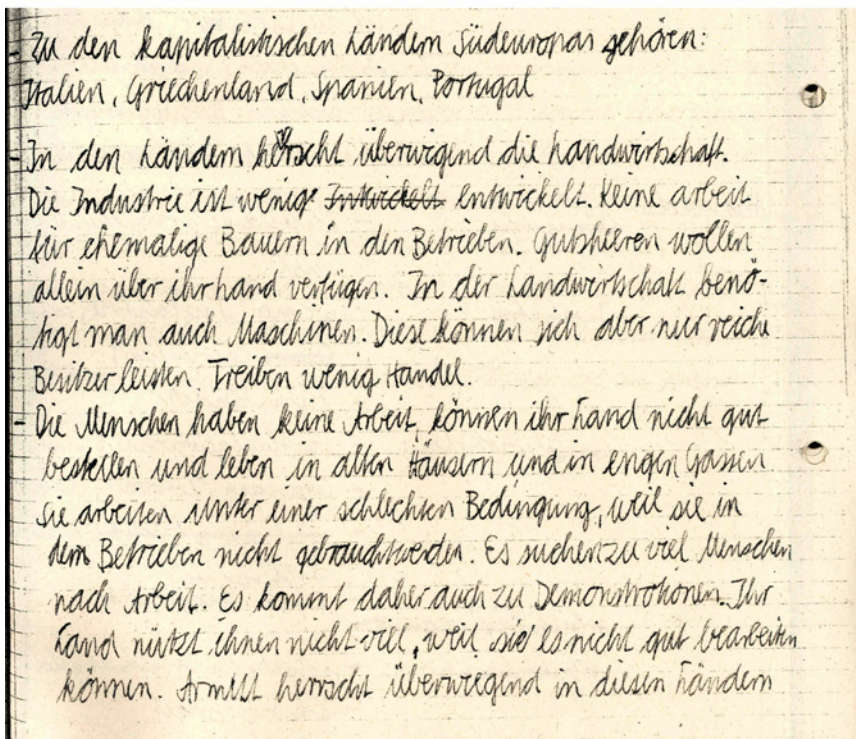 - Zu den kapitalistischen Ländern Südeuropas gehören:
Italien, Griechenland, Spanien, Portugal
- In den Ländern herrscht überwigend die Landwirtschaft.
Die Industrie ist wenig Intwickelt entwickelt. Keine arbeit
für ehemalige Bauern in den Betrieben. Gutsheeren wollen
allein über ihr Land verfügen. In der Landwirtschaft benö-
tigt man auch Maschinen. Diese können sich aber nur reiche
Besitzer leisten. Treiben wenig Handel.
- Die Menschen haben keine Arbeit, können ihr Land nicht gut
bestellen und leben in alten Häusern und in engen Gassen
Sie arbeiten unter einer schlechten Bedingung, weil sie in
dem Betrieben nicht gebraucht werden. Es suchen zu viel Menschen
nach Arbeit. Es kommt daher auch zu Demonstrationen. Ihr
Land nützt ihnen nicht viel, weil sie es nicht gut bearbeiten
können. Armut herrscht überwiegend in diesen Ländern